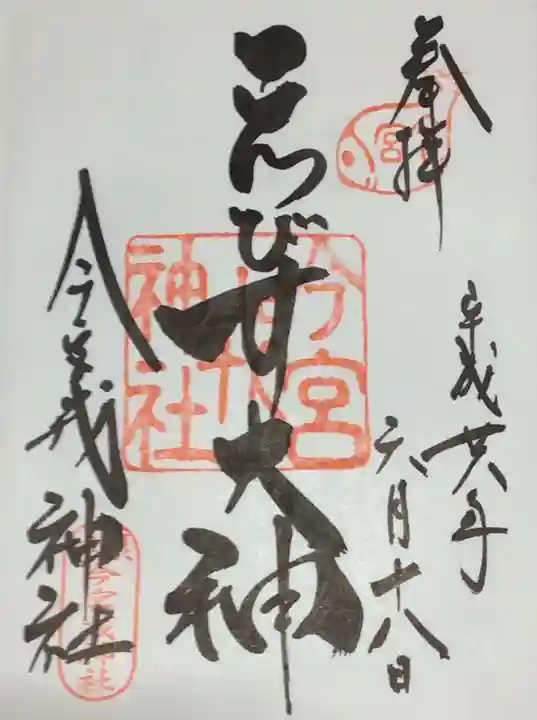 奉拝
平成廿六年
六月十八日
ゑびす大神
今宮戎神社
今宮
戎
神社
宮